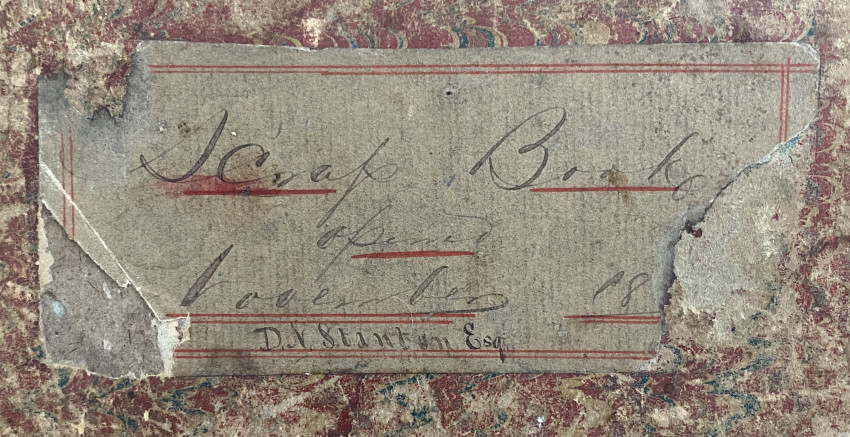 Scrap Book
opened
November 18
D. N. Stanton Esq